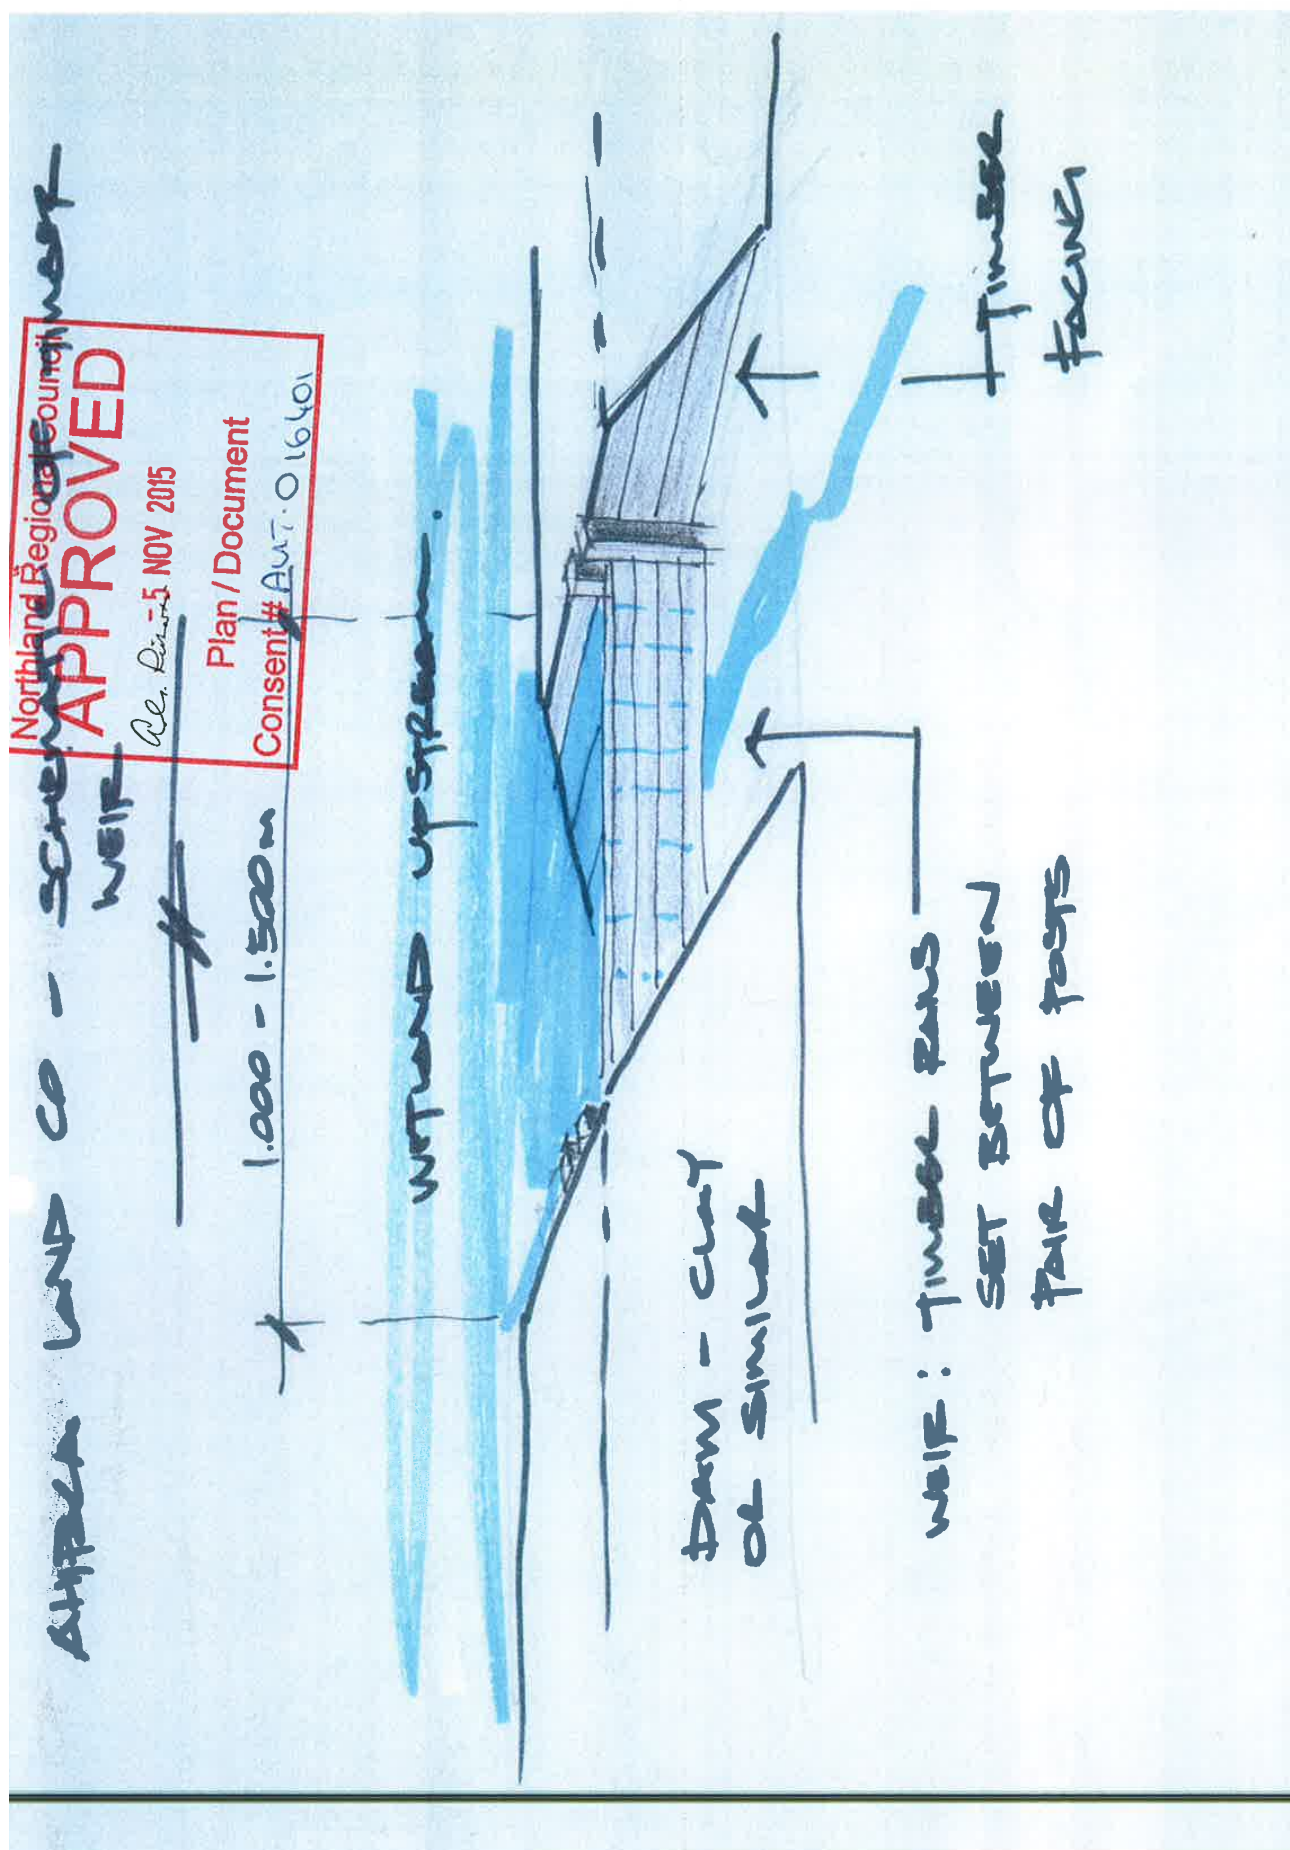 LAND CO - SCHEMATIC OF
WEIR
Northland Regional Council
APPROVED
-5 NOV 2015
Plan / Document
Consent# AUT.016401
1.000 - 1.500m
WETLAND UPSTREAM.
DAM - CLAY
OR SIMILAR
WEIR: TIMBER RAILS
SET BETWEEN
PAIR OF POSTS
TIMBER
FACING